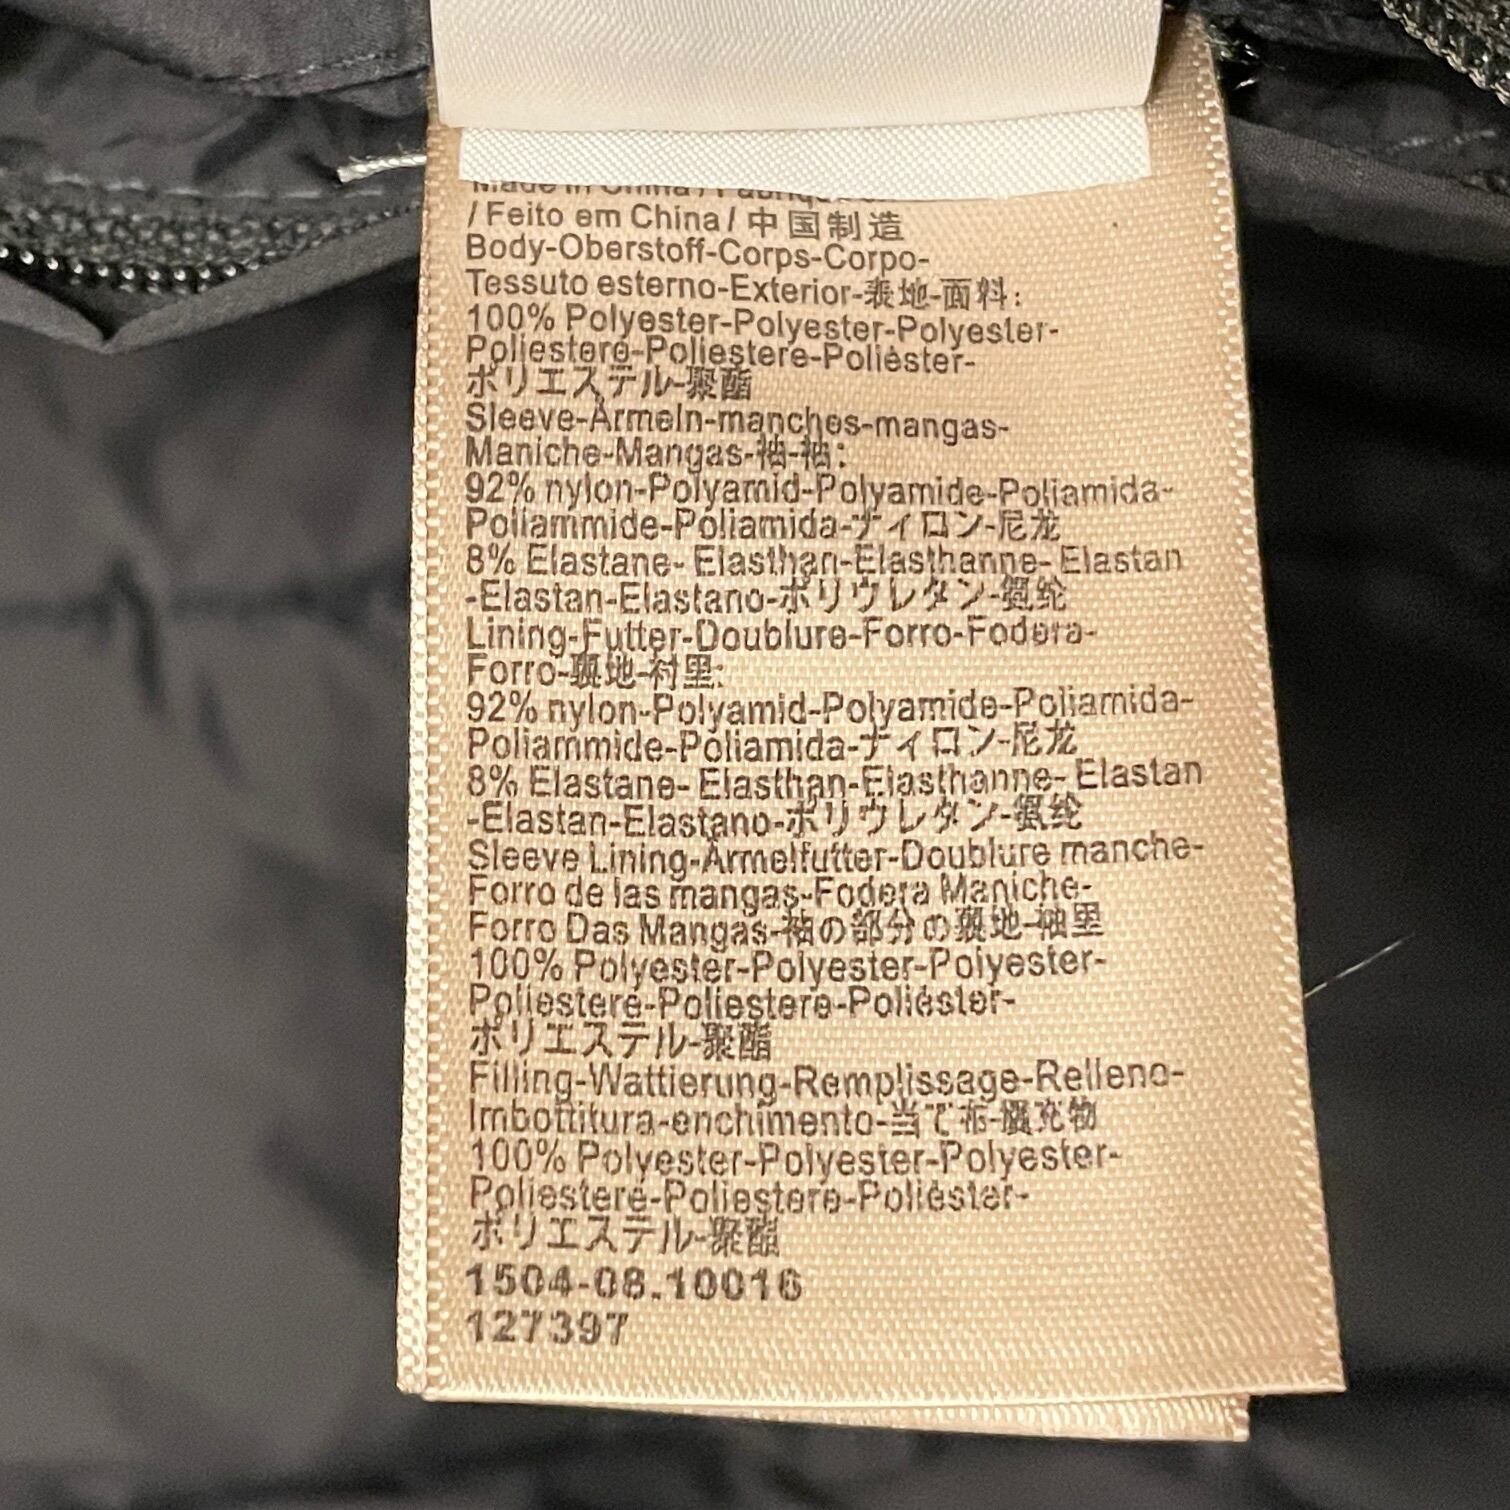 Made in China /
/ Feito em China / 中国制造
Body-Oberstoff-Corps-Corpo-
Tessuto esterno-Exterior-表地-面料:
100% Polyester-Polyester-Polyester-
Poliesteré-Poliestere-Poliéster-
ポリエステル-聚酯
Sleeve-Ärmeln-manches-mangas-
Maniche-Mangas-袖-袖:
92% nylon-Polyamid-Polyamide-Poliamida-
Poliammide-Poliamida-ナイロン-尼龙
8% Elastane- Elasthan-Elasthanne- Elastan
-Elastan-Elastano-ポリウレタン-氨纶
Lining-Futter-Doublure-Forro-Fodera-
Forro-裏地-衬里:
92% nylon-Polyamid-Polyamide-Poliamida-
Poliammide-Poliamida-ナイロン-尼龙
8% Elastane- Elasthan-Elasthanne- Elastan
-Elastan-Elastano-ポリウレタン-氨纶
Sleeve Lining-Ärmelfutter-Doublure manche-
Forro de las mangas-Fodera Maniche-
Forro Das Mangas-袖の部分の裏地-袖里
100% Polyester-Polyester-Polyester-
Poliesteré-Poliestere-Poliéster-
ポリエステル-聚酯
Filling-Wattierung-Remplissage-Relleno-
Imbottitura-enchimento-当て布-填充物
100% Polyester-Polyester-Polyester-
Poliesteré-Poliestere-Poliéster-
ポリエステル-聚酯
1504-08.10016
127397